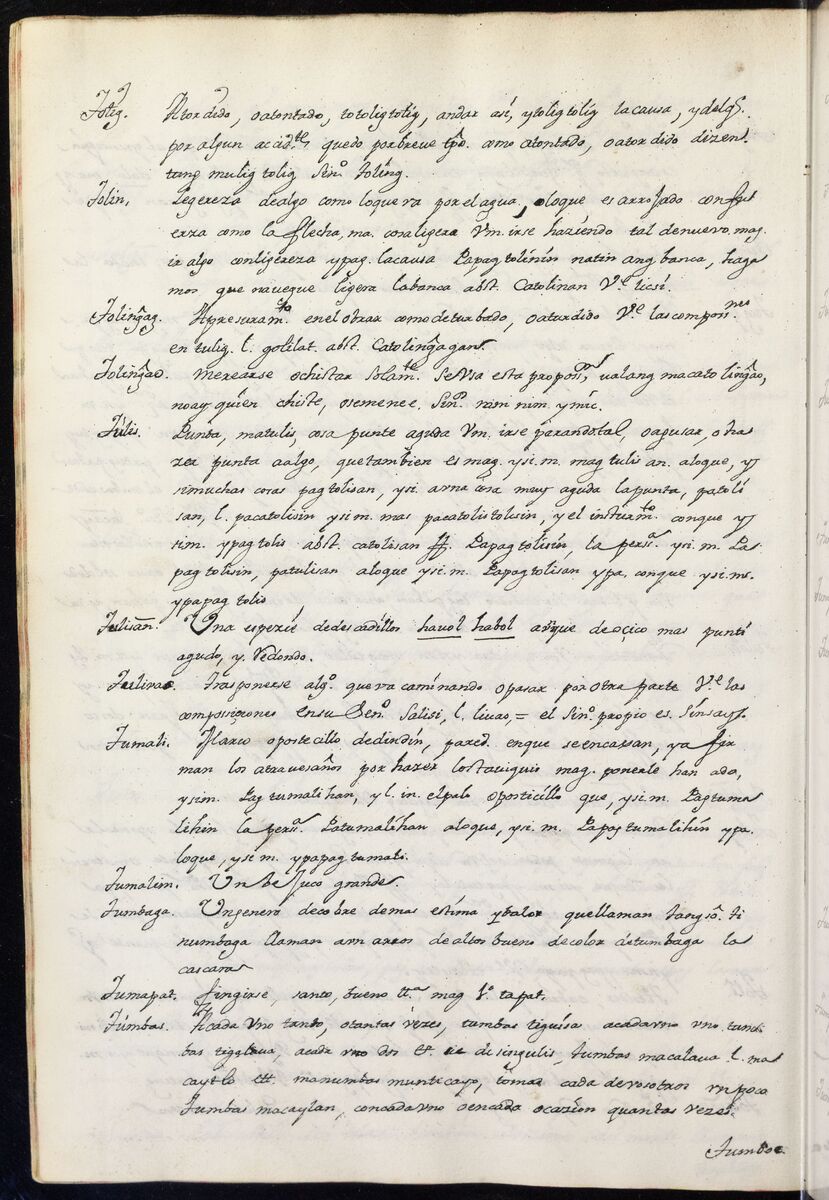 Tolig. Atordido, oatontado, totoligtolig, andar así, ytoligtolig lacausa, ydelq.
por algun acid.te quedo porbreve tpo. como atontado, oatordido dizen
tang mulig tolig Sin.o toling.
Tolin, Ligereza dealgo como loque va por el agua, oloque es arrojado confu
erza como la flecha, ma. cosaligera Vm. irse haziendo tal denuevo, mag.
ir algo conligereza ypag. lacausa Papagtolinin natin ang banca, haga
mos que navegue ligera labanca abst. Catolinan V.e licsi.
Tolingag. Apresuram.to enel obrar comodeturbado, oaturdido V.e lascompon.nes
en tulig. l. golilat. abst. Catolingagan
Tolingao. menearse ochistar Solam.te seVsa esta propon.n, ualang macatolingao,
noay quien chiste, osemenee. Sin.o nim nim. ymic.
Túlis. Punta, matulis, cosa punte aguda Vm. irse parandotal, oaguzar, oha
zer punta aalgo, quetambien es mag. ysi.m. magtulisan. aloque, y
simuchas cosas pagtolisan, ysi. arma una muy aguda lapunta, patoli
san, l. pacatolisin ysi m. mas pacatolistolisin, y el instrum.to conque y
sim. ypagtolis abst. catolisan ff. Papagtolisin, la pers.a ysi. m. Pa
pagtolisin, patulisan aloque ysi. m. Papagtolisan ypa. conque ysi. m.
ypapagtolis
Tulisan. Una espezie dedescadillos havol habol aunque deoçico mas punti
agudo, y. Redondo.
Tulinac. Trasponerse alg.o queva caminando opasar por otra parte V.e las
compossiçiones ensu Sen.o Salisi, l. liuao, = el Sin.o propio es. Sinsay.
Tumali. Marco opostecillo dedindin, pared. enque seencassan, ya fir
man los atravesaños por hazer lostauiquis mag. ponerle han ado,
ysim. Pagtumalihan, y l. in. elpalo oposticillo que, ysi. m. Pagtuma
lihin la pers.a Patumalihan aloque, ysi. m. Papagtumalihin ypa.
loque, ysi. m. ypapagtumali.
Tumalim. Un bejuco grande.
Tumbaga. Ungenero decobre demas estima yvalor quellaman tangso. ti
numbaga llaman aun arros dealtos bueno decolor detumbaga la
cascara
Tumapat. fingirse, santo, bueno ett.a mag V.o tapat.
Túmbas. Acada Vno tanto, otantas vezes, tumbas tiguisa acadavno vno. tum
bas tigalaua, acada vno dos ett. de singulis, tumbas macalaua l. ma
caytlo ett. manumbas munticayo, tomad cada devosotros vn poco
Tumbas macaylan, concadavno oencada ocazion quantas vezes.
Tumboc.